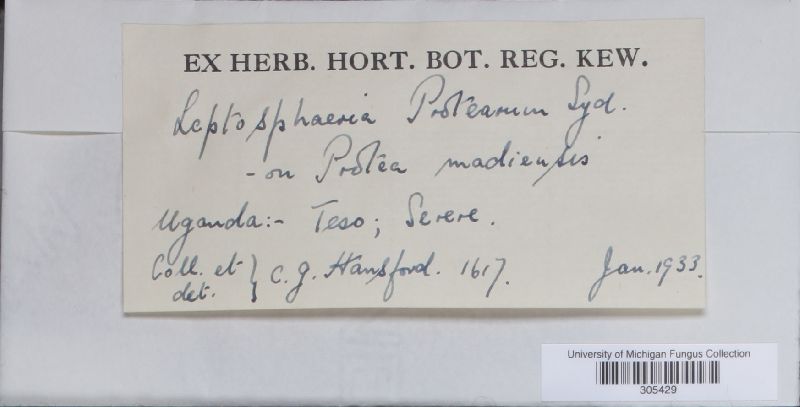 EX HERB. HORT. BOT. REG. KEW.
Leptosphaeria Protearum Syd.
- on Protea madiensis
Uganda:- Teso; Serere.
Coll. et det. } C. G. Hansford. 1617. Jan. 1933.
University of Michigan Fungus Collection
305429